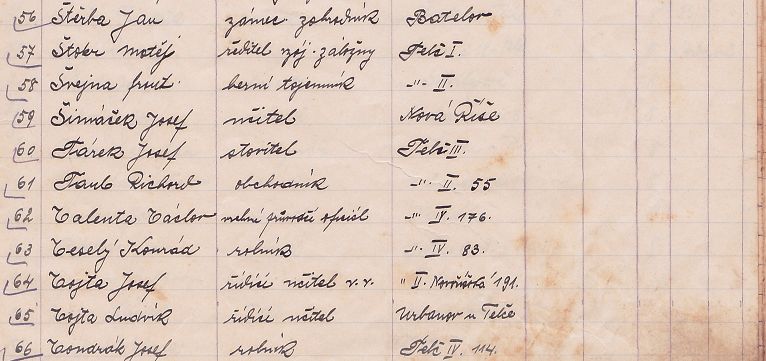 56 Štěrba Jan zámec. zahradník Batelov
57 Štoer Matěj ředitel voj. záložny Telč I.
58 Švejna frant. berní tajemník -"- II.
59 Šimáček Josef učitel Nová Říše
60 Tárek Josef stavitel Telč III.
61 Taub Richard obchodník -"- II. 55
62 Valenta Václav oficiál -"- IV. 176.
63 Veselý Konrád rolník -"- IV. 83.
64 Vojta Josef řídící učitel v.v. " II. 191.
65 Vojta Ludvík řídící učitel Urbanov u Telče
66 Vondrák Josef rolník Telč IV. 114.